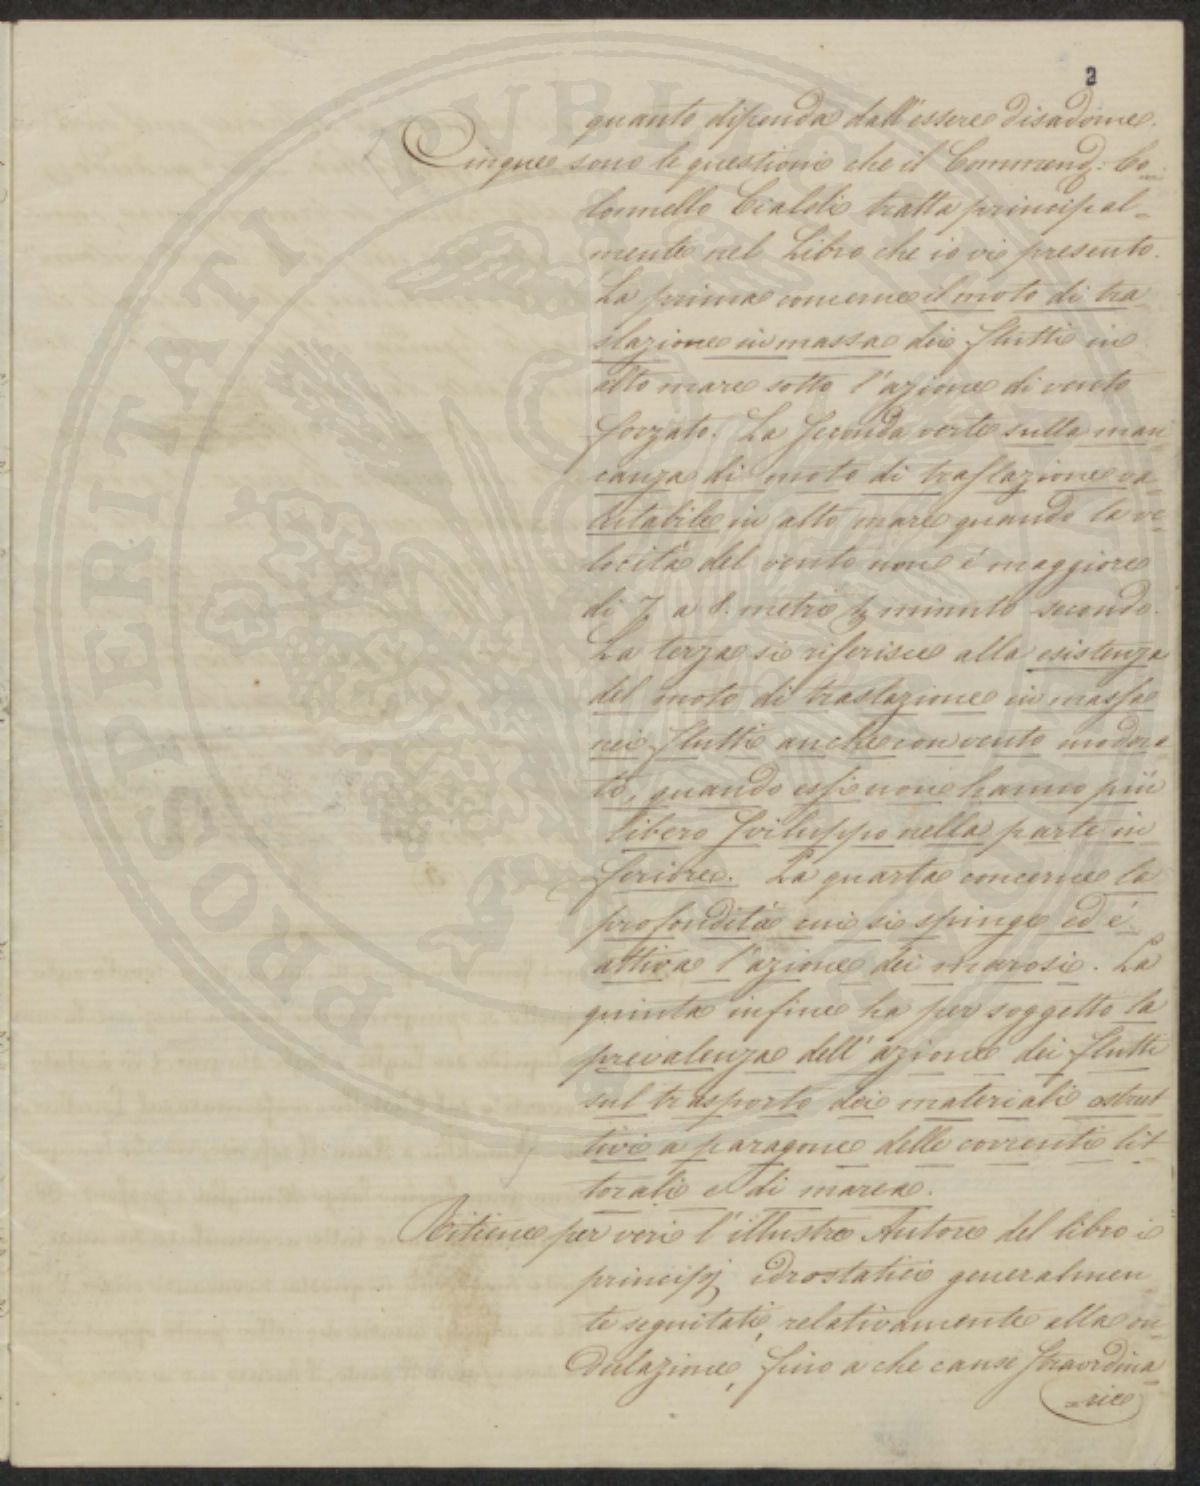 3
quanto dipenda dall'essere disadorne.
Cinque sono le questioni che il Commend: Co=
lonnello Cialdi tratta principal=
mente nel Libro che io vi presento.
La prima concerne il moto di tra=
slazione in massa dei flutti in
alto mare sotto l'azione di vento
forzato. La seconda verte sulla man
canza di moto di traslazione va=
lutabile in alto mare quando la ve=
locità del vento non é maggiore
di 7 a 8. metri minuto secondo.
La terza si riferisce alla esistenza
del moto di traslazione in massa
nei flutti anche con vento modera
to, quando essi non hanno più
libero sviluppo nella parte in
feriore. La quarta concerne la
profondità cui si spinge ed é
attiva l'azione dei marosi. La
quinta infine ha per soggetto la
prevalenza dell'azione dei flutti
sul trasporto dei materiali ostrut
tivi a paragone delle correnti lit
torali e di marea.
Ritiene per veri l'illustre Autore del libro i
principj idrostatici generalmen
te seguitati, relativamente alla on=
dulazione, fino a che cause straordina=
=rie
PROSPERITATI PUBLICAE